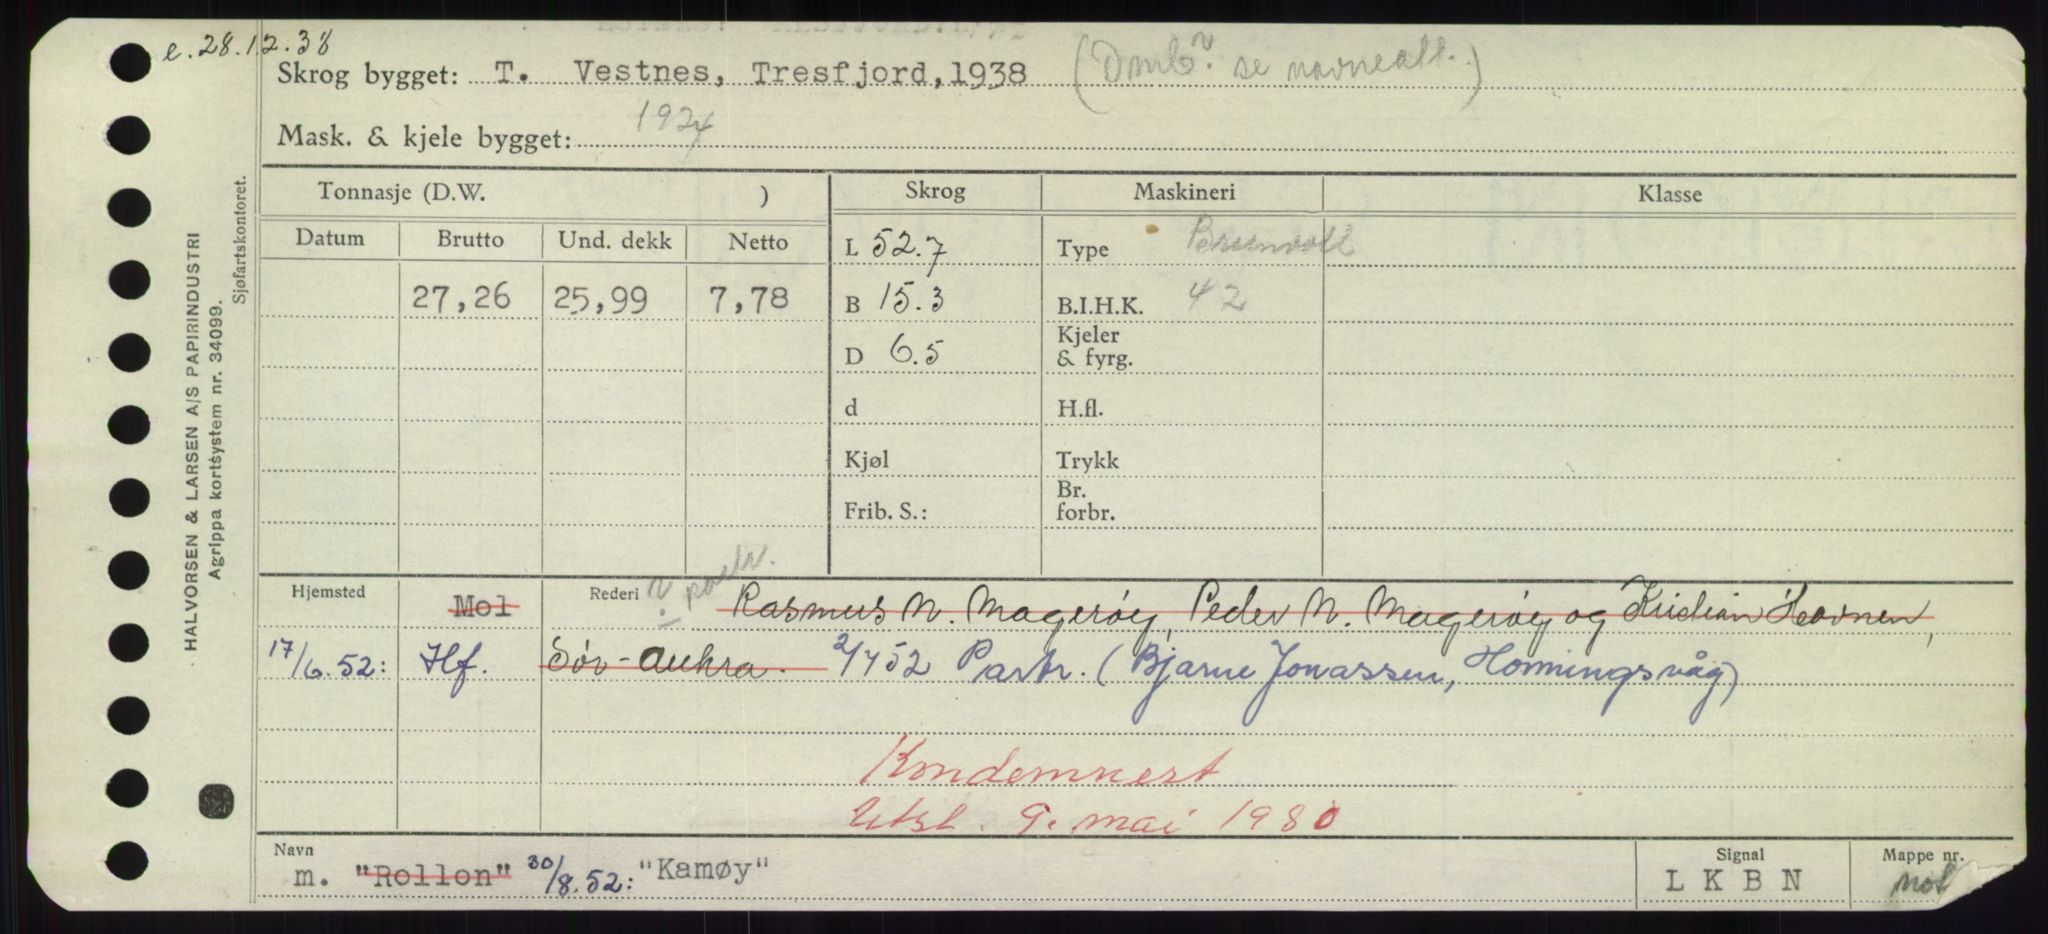 e. 28.12.38
Skrog bygget: T. Vestnes, Tresfjord, 1938 (Omb. se navneatt.)
Mask. & kjele bygget: 1924
HALVORSEN & LARSEN A/S PAPIRINDUSTRI
Agrippa kortsystem nr. 34099.
Sjøfartskontoret.
Tonnasje (D.W. ) Skrog Maskineri Klasse
Datum Brutto Und. dekk Netto L 52.7 Type Brunvoll
27,26 25,99 7,78 B 15.3 B.I.H.K. 42
D 6.5 Kjeler & fyrg.
d H.fl.
Kjøl Trykk
Frib. S.: Br. forbr.
Hjemsted Mol Rederi partr. Rasmus N. Magerøy, Peder N. Magerøy og Kristian Hovnen,
17/6.52: Hf. Sør-Aukra. 2/4 52 Partr. (Bjarne Jonassen, Honningsvåg)
Kondemnert
Utsl. 9. mai 1980
Navn m. "Rollon" 30/8.52: "Kamøy" Signal LKBN Mappe nr. not